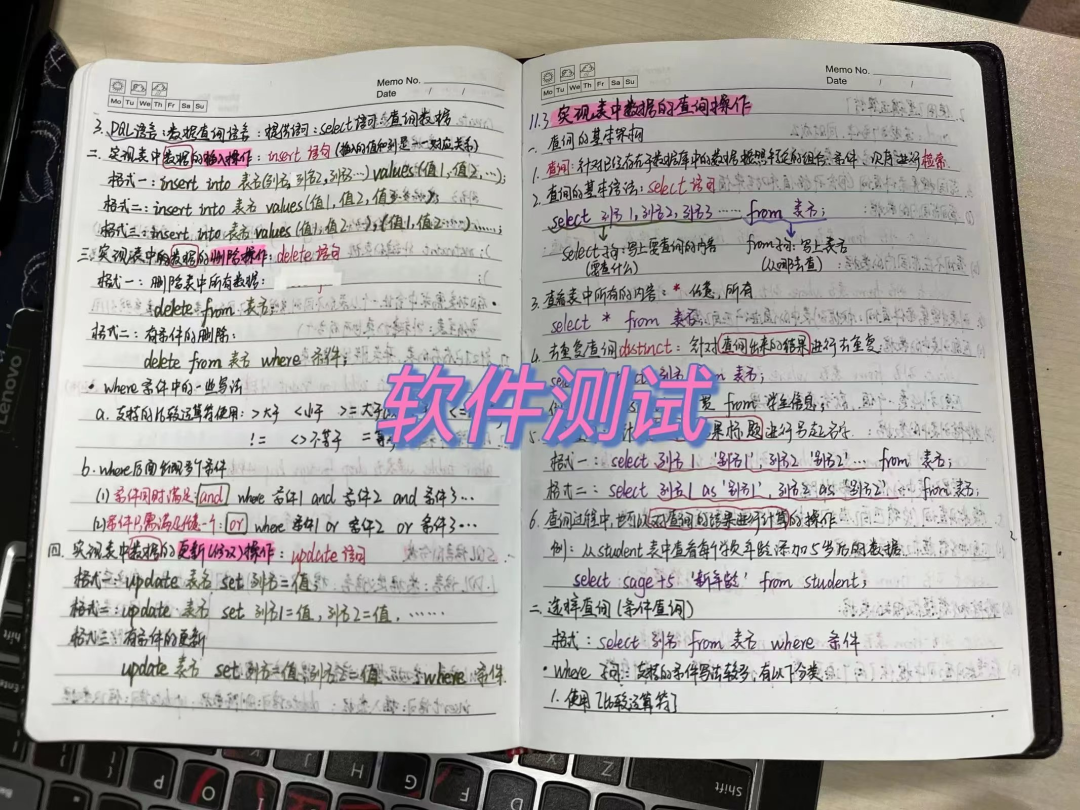 Memo No.
Date / /
Mo Tu We Th Fr Sa Su
3. DQL语言:数据查询语言:提供词:select语句:查询数据
二. 实现表中数据的插入操作:insert 语句(插入的值和列是一一对应关系)
格式一:insert into 表名(列名1, 列名2, 列名3…) values(值1, 值2, …);
格式二:insert into 表名 values(值1, 值2, 值3……);
格式三:insert into 表名 values (值1, 值2…), (值1, 值2…)……;
三. 实现表中的数据的删除操作:delete 语句
格式一:删除表中所有数据:
delete from 表名;
格式二:有条件的删除:
delete from 表名 where 条件;
where条件中的一些写法
a. 支持的比较运算符使用:>大于 <小于 >=大于
!= <>不等于 =
b. where后面出现多个条件
(1) 条件同时满足:and where 条件1 and 条件2 and 条件3…
(2) 条件只需满足任意一个:or where 条件1 or 条件2 or 条件3…
四. 实现表中数据的更新(修改)操作:update 语句
格式一:update 表名 set 列名=值;
格式二:update 表名 set 列名1=值, 列名2=值, ……
格式三:有条件的更新
update 表名 set 列名=值, 列名2=值 …… where 条件
Memo No.
Date / /
Mo Tu We Th Fr Sa Su
11.3 实现表中数据的查询操作
一. 查询的基本
1. 查询:针对已经存在于数据库中的数据按照特定的组合、条件、次序进行检索
2. 查询的基本语法:select 语句
select 列名1, 列名2, 列名3 …… from 表名;
select子句:写上要查询的内容 from子句:写上表名
(要查什么) (从哪去查)
3. 查看表中所有的内容:* 任意, 所有
select * from 表名;
4. 去重复查询distinct:针对查询出来的结果进行去重复
列名 from 表名;
from 学生信息;
果标题进行另起名字
格式一:select 列名1 '别名1', 列名2 '别名2'… from 表名;
格式二:select 列名1 as '别名1', 列名2 as '别名2' … from 表名;
6. 查询过程中, 也可以对查询的结果进行计算的操作
例:从student表中查看每个人年龄添加5岁后的数据
select sage+5 '新年龄' from student;
二. 选择查询(条件查询)
格式:select 列名 from 表名 where 条件
• where 子句:支持的条件写法较多, 有以下分类
1. 使用[比较运算符]
软件测试
Lenovo
Shift
Enter